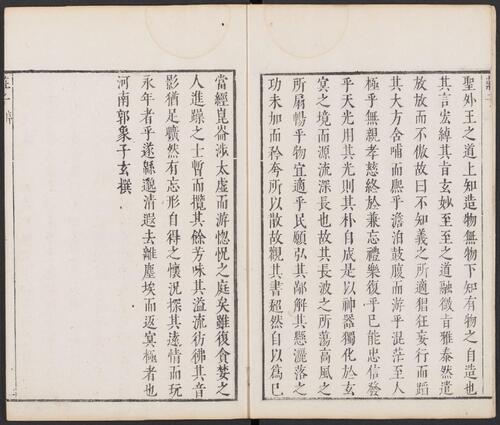 聖外王之道上知造物無物下知有物之自造也
其言宏綽其旨玄妙至至之道融微旨雅泰然遣
放放而不傲故曰不知義之所適猖狂妄行而蹈
其大方含哺而熙乎澹泊鼓腹而游乎混茫至人
極乎無親孝慈終於兼忘禮樂復乎已能忠信發
乎天光用其光則其朴自成是以神器獨化於玄
冥之境而源流深長也故其長波之所蕩高風之
所扇暢乎物宜適乎民願弘其鄙解其懸灑落之
功未加而矜夸所以散故觀其書超然自以為已
當經崑崙涉太虛而游惚怳之庭矣雖復貪婪之
人進躁之士暫而攬其餘芳味其溢流彷彿其音
影猶足曠然有忘形自得之懷況探其遠情而玩
永年者乎遂緜邈清遐去離塵埃而返冥極者也
河南郭象子玄撰